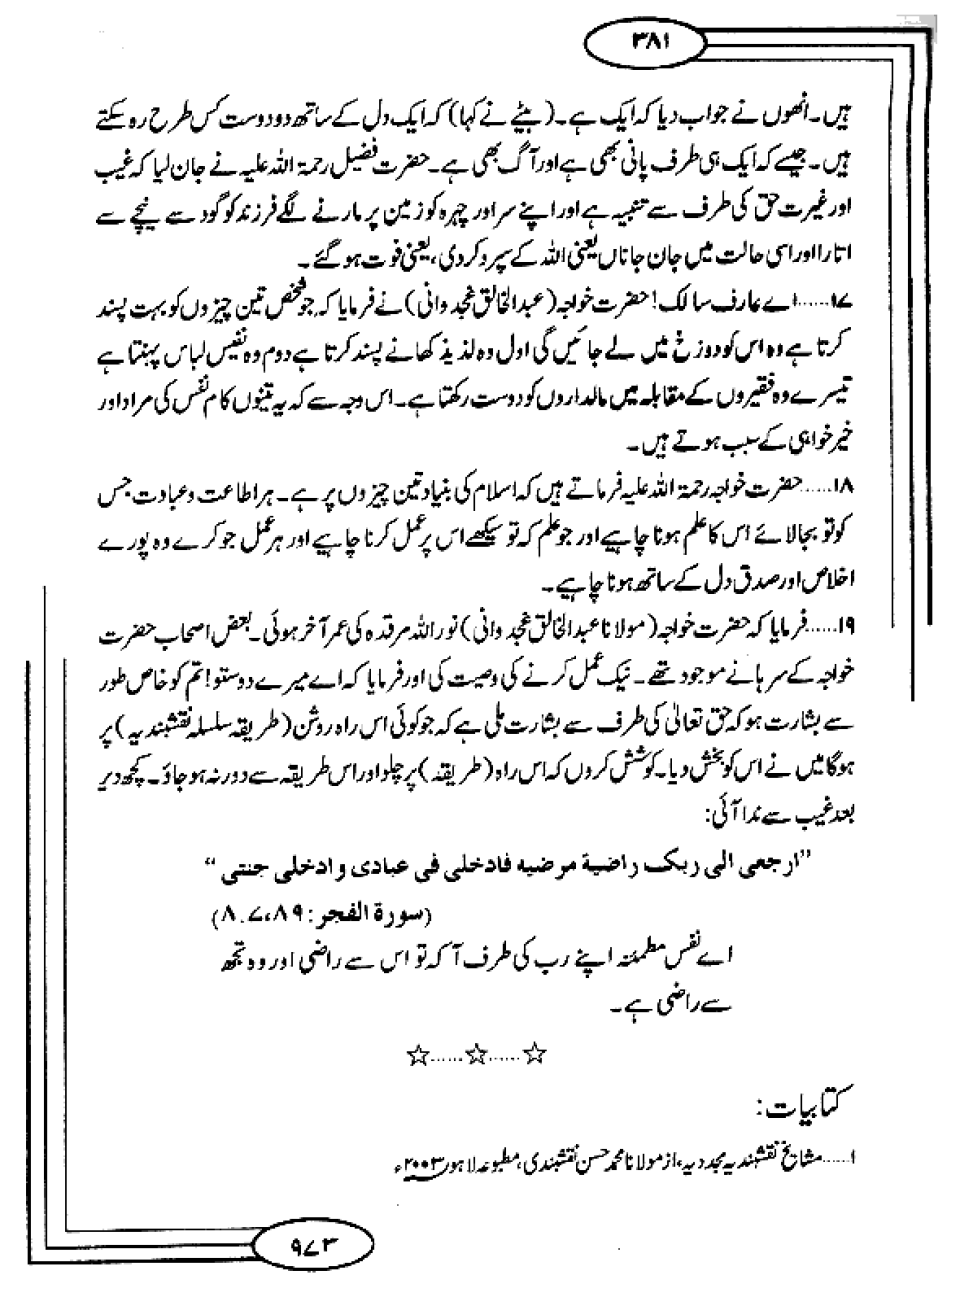 ۳۸۱
ہیں۔ انھوں نے جواب دیا کہ ایک ہے۔ (بیٹے نے کہا) کہ ایک دل کے ساتھ دو دوست کس طرح رہ سکتے
ہیں۔ جیسے کہ ایک ہی طرف پانی بھی ہے اور آگ بھی ہے۔ حضرت فضیل رحمۃ اللہ علیہ نے جان لیا کہ غیب
اور غیرت حق کی طرف سے تنبیہ ہے اور اپنے سر اور چہرہ کو زمین پر مارنے لگے فرزند کو گود سے نیچے سے
اتارا اور اسی حالت میں جان جاناں یعنی اللہ کے سپرد کر دی، یعنی فوت ہو گئے۔
۱۷......اے عارف سالک! حضرت خواجہ (عبدالخالق غجدوانی) نے فرمایا کہ جو شخص تین چیزوں کو بہت پسند
کرتا ہے وہ اس کو دوزخ میں لے جائیں گی اول وہ لذیذ کھانے پسند کرتا ہے دوم وہ نفیس لباس پہنتا ہے
تیسرے وہ فقیروں کے مقابلہ میں مالداروں کو دوست رکھتا ہے۔ اس وجہ سے کہ یہ تینوں کام نفس کی مراد اور
خیر خواہی کے سبب ہوتے ہیں۔
۱۸......حضرت خواجہ رحمۃ اللہ علیہ فرماتے ہیں کہ اسلام کی بنیاد تین چیزوں پر ہے۔ ہر اطاعت و عبادت جس
کو تو بجا لائے اس کا علم ہونا چاہیے اور جو علم کہ تو سیکھے اس پر عمل کرنا چاہیے اور ہر عمل جو کرے وہ پورے
اخلاص اور صدق دل کے ساتھ ہونا چاہیے۔
۱۹......فرمایا کہ حضرت خواجہ (مولانا عبدالخالق غجدوانی) نور اللہ مرقدہ کی عمر آخر ہوئی۔ بعض اصحاب حضرت
خواجہ کے سرہانے موجود تھے۔ نیک عمل کرنے کی وصیت کی اور فرمایا کہ اے میرے دوستو! تم کو خاص طور
سے بشارت ہو کہ حق تعالیٰ کی طرف سے بشارت ملی ہے کہ جو کوئی اس راہ روشن (طریقہ سلسلہ نقشبندیہ) پر
ہوگا میں نے اس کو بخش دیا۔ کوشش کروں کہ اس راہ (طریقہ) پر چلو اور اس طریقہ سے دور نہ ہو جاؤ۔ کچھ دیر
بعد غیب سے ندا آئی:
”ارجعی الی ربک راضیة مرضیه فادخلی فی عبادی و ادخلی جنتی“
(سورة الفجر: ۸۹،۷۔۸)
اے نفس مطمئنہ اپنے رب کی طرف آ کہ تو اس سے راضی اور وہ تجھ
سے راضی ہے۔
☆......☆......☆
کتابیات:
۱......مشایخ نقشبندیہ مجددیہ، از مولانا محمد حسن نقشبندی، مطبوعہ لاہور ۲۰۰۳ء
۹۷۳